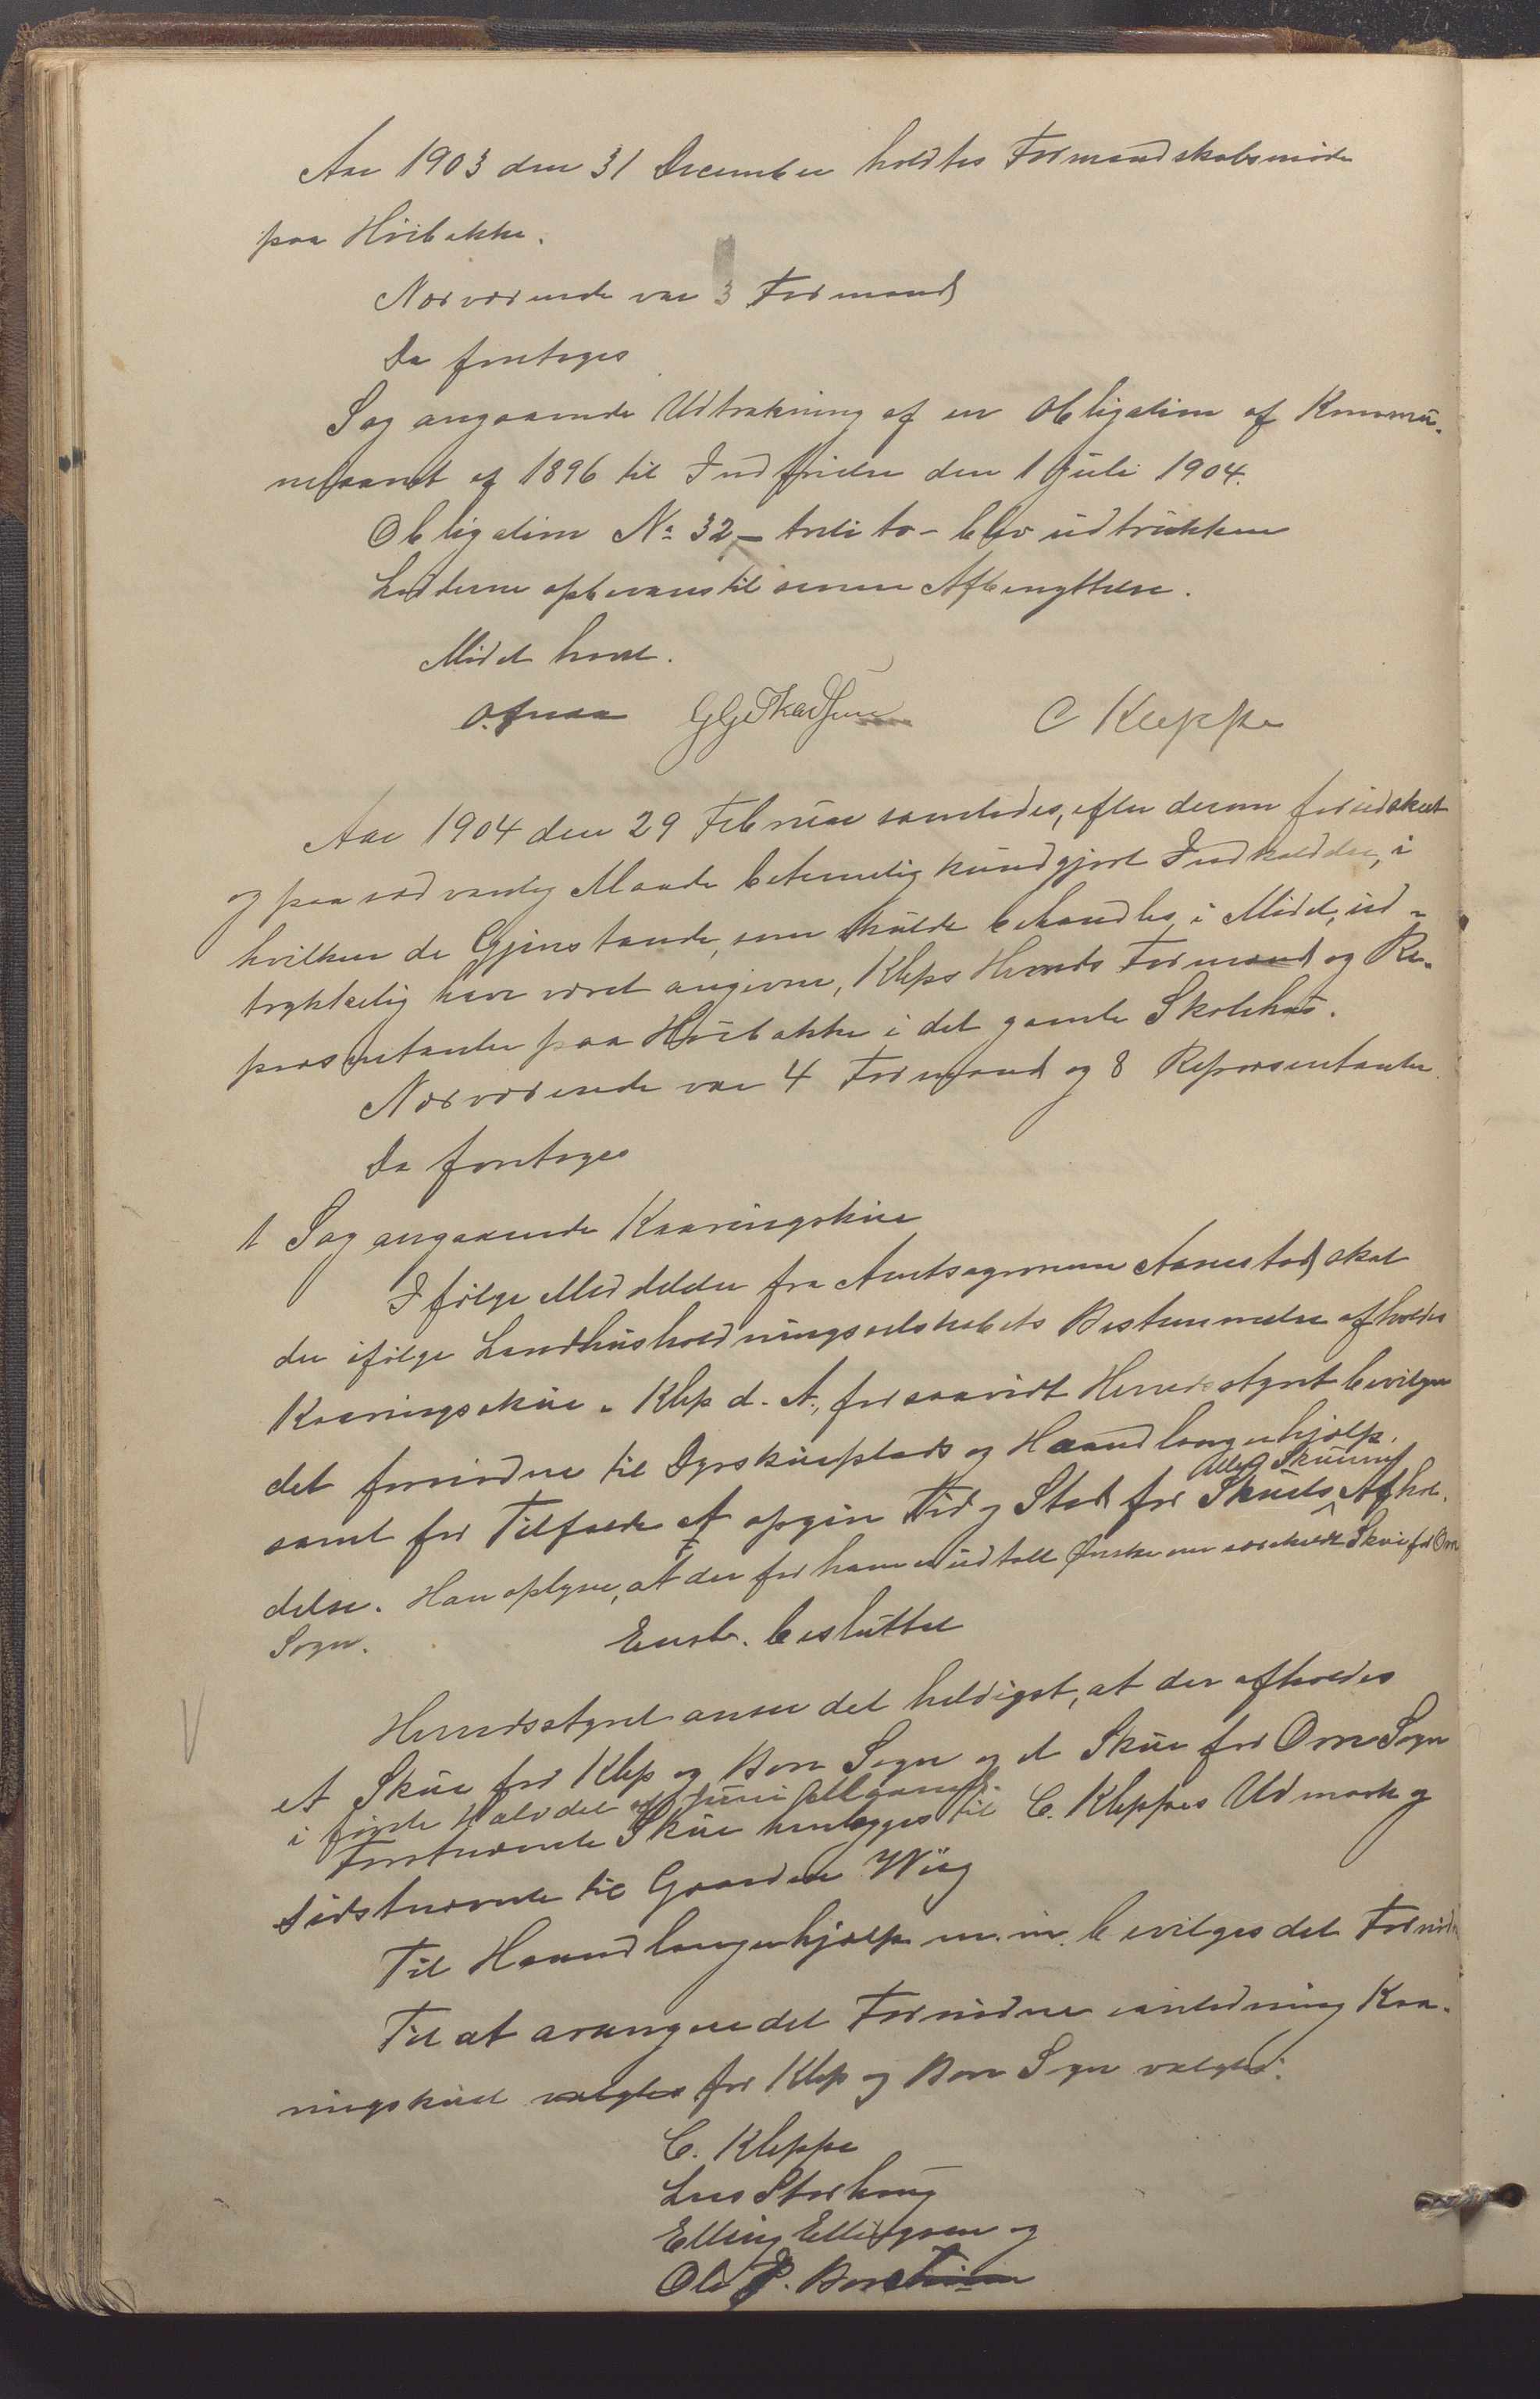 Aar 1903 den 31 December holdtes Formandskabsmøde
paa Høibakke.
Nærværende var 3 Formænd
Da foretoges
Sag angaaende Udtrækning af en Obligation af Kommu-
nelaanet af 1896 til Indfrielse den 1 Juli 1904.
Obligation No 32 – treti to – blev udtrukken
Lodderne opbevares til senere Afbenyttelse.
Mødet hævet.
C Kleppe
Aar 1904 den 29 Februar samledes, efter derom forudskeet
og paa sædvanlig Maade betimelig kundgjort Indkaldelse, i
hvilken de Gjenstande, som skulde behandles i Mødet, ud-
trykkelig have været angivne, Kleps Herreds Formænd og Re-
præsentanter paa Høibakke i det gamle Skolehus.
Nærværende var 4 Formænd og 8 Repræsentanter.
Da foretoges
1 Sag angaaende Kaaringskue
Ifølge Meddelelse fra Amtsagronom Aanestad skal
der ifølge Landhusholdningsselskabets Bestemmelse afholdes
Kaaringsskue i Klep d. A., forsaavidt Herredsstyret bevilger
det fornødne til Dyrskueplads og Haandlangerhjælp.
samt for Tilfælde At opgive Tid og Sted for Skuets Afhol-
delse. Han oplyser, at der for ham er udtalt Ønske om særskilt Skue for Orre
Sogn.
Enst. besluttet
Herredsstyret anser det heldigst, at der afholdes
et Skue for Klep og Bore Sogn og et Skue for Orre Sogn
i første Halvdel af Juni Maaned.
Førstnævnte Skue henlægges til C. Kleppes Udmark og
sidstnævnte til Gaarden Wiig
Til Haandlangerhjælp m.m. bevilges det Fornødne
Til at arangere det Fornødne i anledning Kaa-
ringskuet valgtes for Klep og Bore Sogn valgtes:
C. Kleppe
Lars Storhaug
Elling Ellingsen og
Ole P. Bore